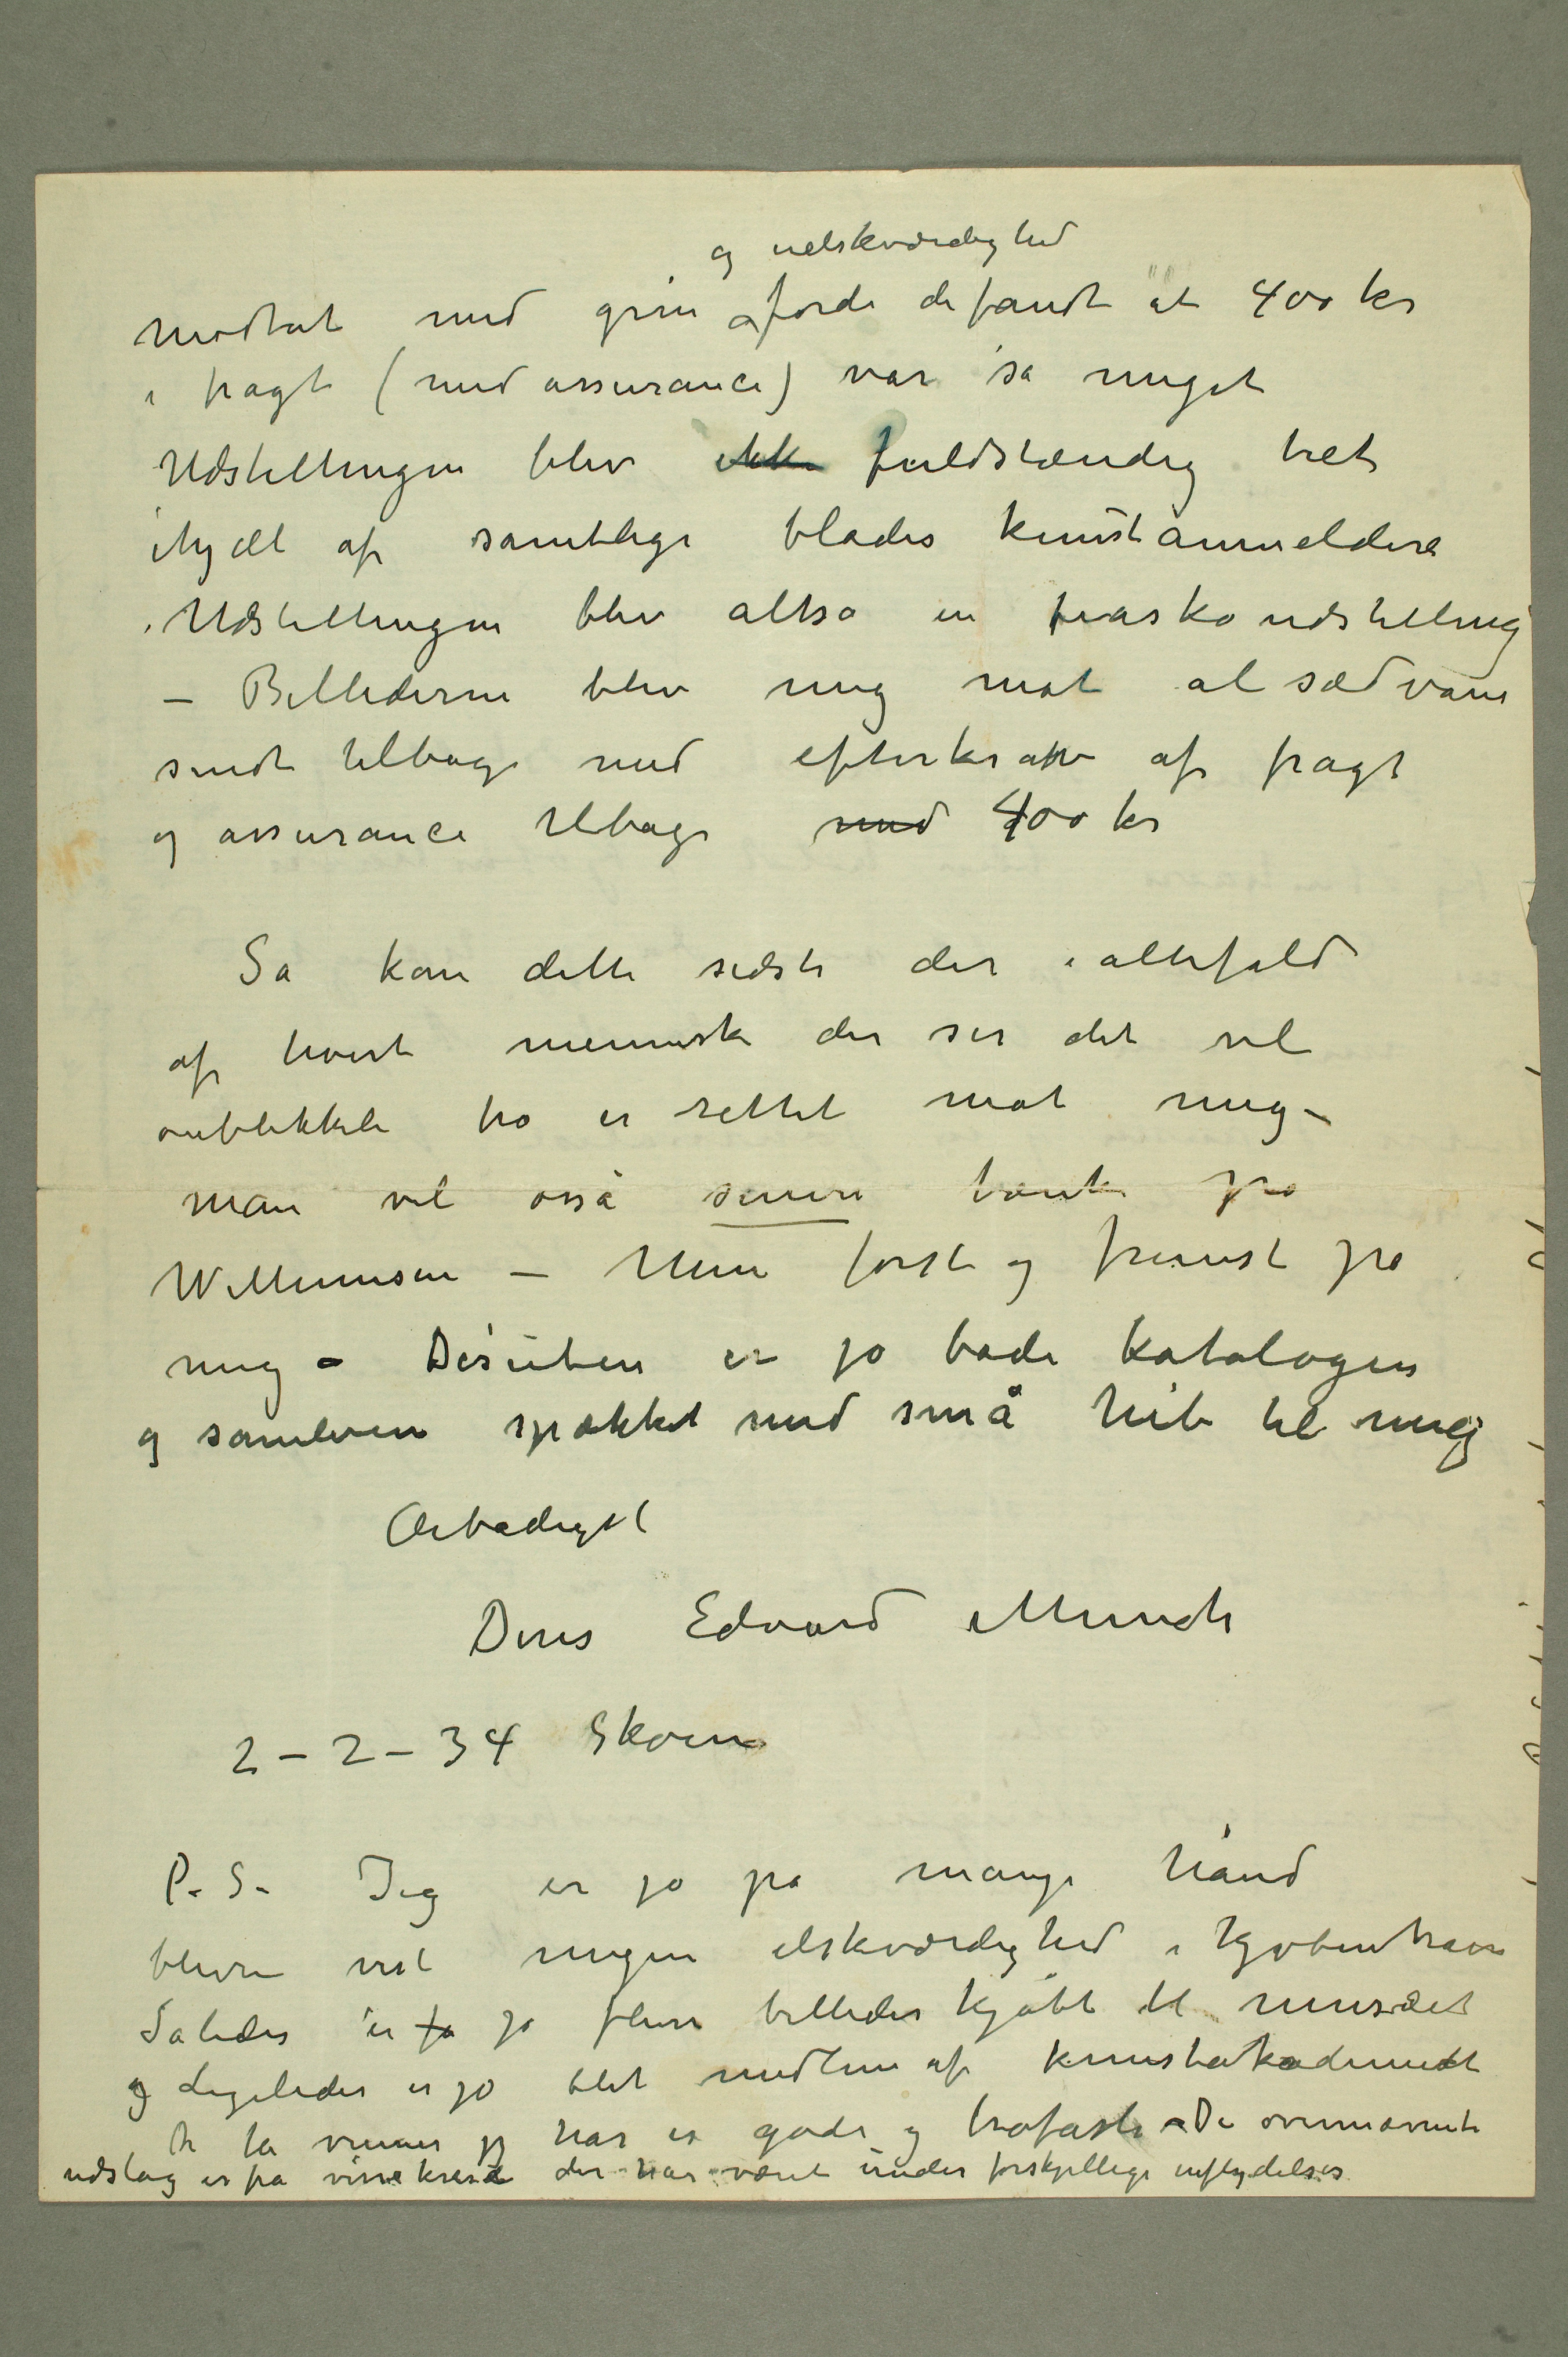 og uelskværdighed
modtat med grin fordi de fandt at 400 kr
i fragt (med assurance) var så meget
Udstillingen blev ikke fuldstændig tiet
ihjæl af samtlige blades kunstanmeldere
Udstillingen blev altså en fiaskoudstilling
– Billederne blev mig mot al sædvane
sendt tilbage med efterkrav af fragt
og assurance tilbage med 400 kr
Så kom dette sidste der i altefald
af hvert menneske der ser det vil
øieblikkeli tro er rettet mot mig –
man vil osså senere tænke på
Willumsen – Men først og fremst på
mig – Desuten er jo både katalogen
og spækket med små hib til mig
Ærbødigst
Deres Edvard Munch
2–2–34 Skøien
P.S. Jeg er jo på mange hånd
bleven vist megen elskværdighed i Kjøbenhavn
Således er få jo flere billeder kjøbt til musæet
og Ligeledes er jo blit medlem af kunstakademiet
De få venner jeg har er gode og trofaste – De ovennævnte
udslag er fra visse kredse der har været under forskjellige inflydelser